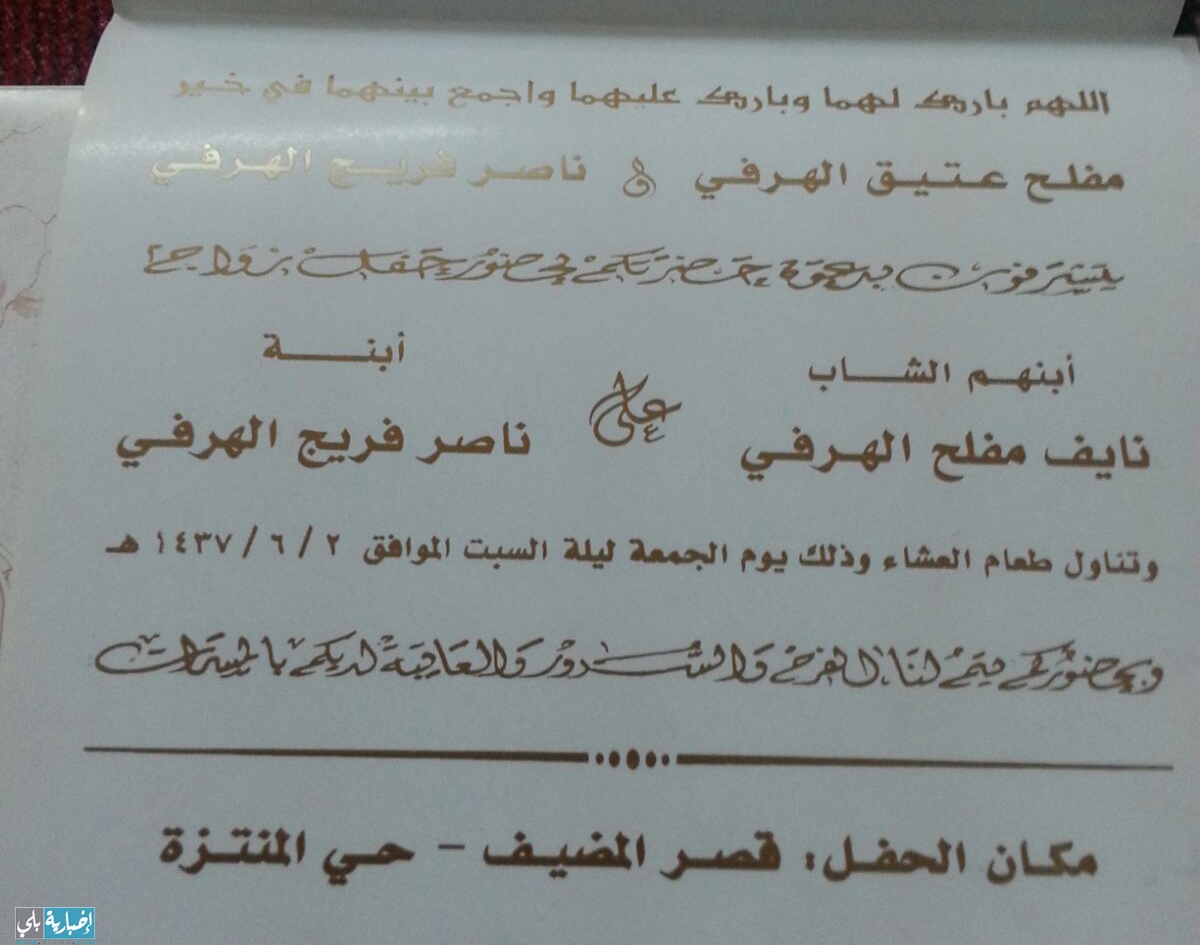 اللهم بارك لهما وبارك عليهما واجمع بينهما في خير
مفلح عتيق الهرفي و ناصر فريج الهرفي
يتشرفون بدعوة حضرتكم في حضور حفل زواج
أبنهم الشاب
أبنة
نايف مفلح الهرفي على ناصر فريج الهرفي
وتناول طعام العشاء وذلك يوم الجمعة ليلة السبت الموافق ٢ / ٦ / ١٤٣٧ هـ
وبحضوركم يتم لنا الفرح والسرور والعاقبة لديكم بالمسرات
مكان الحفل: قصر المضيف - حي المنتزة
إخبارية بلي